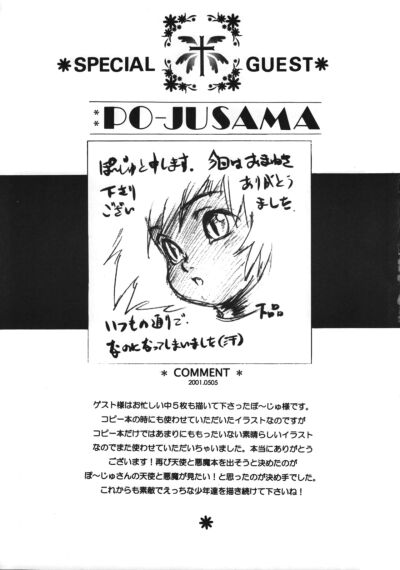 *SPECIAL GUEST*
**PO-JUSAMA
ぽ〜じゅと申します。今回はおまねき
下さり ありがとう
ござい ました
下品
いつもの通りで、
なのになってしまいました(汗)
* COMMENT *
2001.0505
ゲスト様はお忙しい中5枚も描いて下さったぽ〜じゅ様です。
コピー本の時にも使わせていただいたイラストなのですが
コピー本だけではあまりにももったいない素晴らしいイラスト
なのでまた使わせていただいちゃいました。本当にありがとう
ございます！再び天使と悪魔本を出そうと決めたのが
ぽ〜じゅさんの天使と悪魔が見たい！と思ったのが決め手でした。
これからも素敵でえっちな少年達を描き続けて下さいね！
*